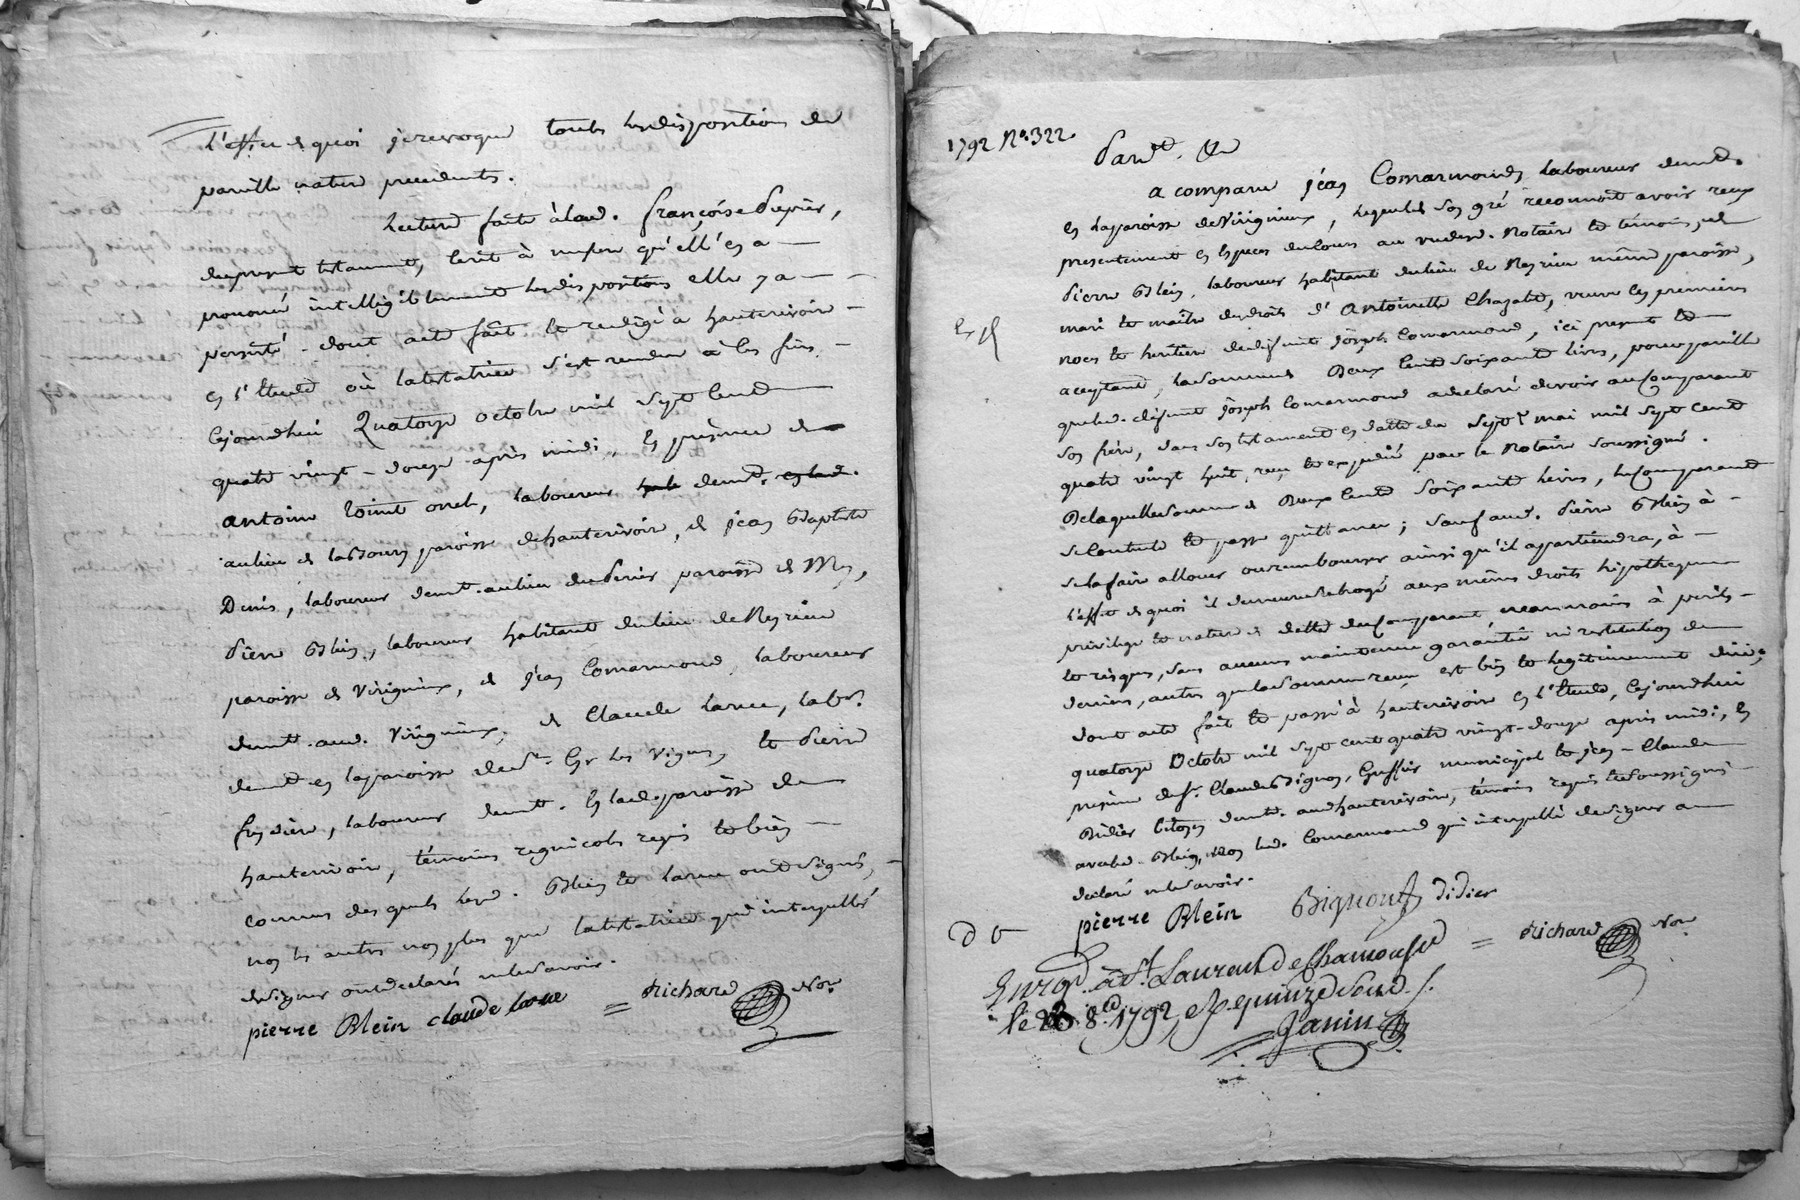 l'effet de quoi je revoque toutes les dispositions de
pareille nature precedentes.
Lecture faite à lad. françoise Dupuis,
du present testament, seroit à
prononcé intelligiblement ses dispositions elle y a
persisté - dont acte fait et redigé a hauterivoir
en l'Etude où la testatrice s'est rendue à ces fins,
Cejourdhui Quatorze octobre mil sept Cent
quatre vingt-douze après midi, En présence de
antoine laboureur demt.
au lieu de paroisse de hauterivoir, de jean Baptiste
Denis, laboureur demt. au lieu du Perier paroisse de Mey,
Pierre Blein, laboureur habitant du lieu de Reyrieu
paroisse de Virigneux, de jean Comarmond, laboureur
demt. aud. Virigneux, de Claude Larue, labr.
demt en la paroisse de St. les Vignes, et Pierre
laboureur demt. En lad. paroisse de
hauterivoir, témoins regnicoles requis et bien
connus desquels lesd. Blein et Larue ont signé,
non les autres non plus que la testatrice qui interpellés
de signer ont declarés ne le savoir.
pierre Blein claude larue = Richard Nore
1792 No. 322.
Pardt. &c
a comparu jean Comarmond, laboureur demt.
en la paroisse de Virigneux, lequel de son gré reconnoit avoir reçu
presentement en Especes de Cours au vu desd. Notaire et témoins, de
Pierre Blein, laboureur habitant du lieu de Reyrieu même paroisse,
mari et maitre des droits d'Antoinette Chazal, veuve en premieres
noces et heritiere de defunt joseph Comarmond, ici present et
acceptant, la somme de Deux Cent soixante livres, pour pareille
que led. defunt joseph Comarmond a declaré devoir au Comparant
son frère, dans son testament en datte du sept mai mil sept cent
quatre vingt huit, reçu et expedié par le Notaire soussigné.
De laquelle somme de Deux Cent Soixante livres, le Comparant
se Contente et passe quittance; sauf aud. Pierre Blein à
se la faire allouer ou rembourser ainsi qu'il appartiendra, à
l'effet de quoi il demeure subrogé aux mêmes droits hipotheques
privilege et nature de dette du Comparant, neanmoins à perils
et risques, sans aucune maintenue garantie ni restitution de
deniers, autres que la somme reçue est bien et legitimement due;
dont acte fait et passé à hauterivoir en l'Etude, Cejourdhui
quatorze Octobre mil sept cent quatre vingt-douze après midi, En
presence de sr. Claude Bignon, Greffier municipal et jean-Claude
Didier Citoyen demt. aud hauterivoir, témoins requis et soussignés
avec led. Blein, non led. Comarmond qui interpellé de signer a
declaré ne le savoir.
pierre Blein Bignon gr didier
= Richard Nore
Enregt. à St. Laurent de Chamousset
le 8.e 1792, R. quinze sous
Janin